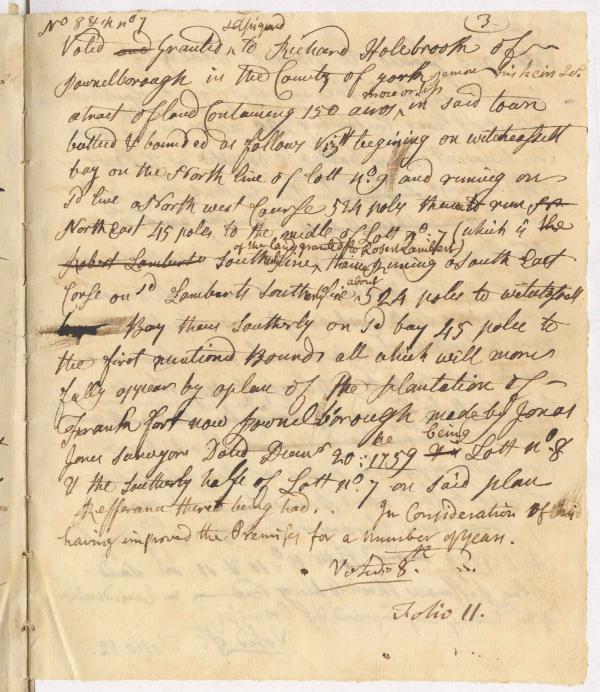 No 8 & ½ no 7
3
Voted and Granted & assigned to Richard Holebrook of
Pownelborough in the County of york yeoman
a tract of land Containing 150 acres more or less in said town
butted & bounded as follows Vizt begining on witchcassett
bay on the North line of Lott no. 9 and runing on
sd line a North west Course 524 poles thence run
North East 45 poles to the midle of Lott no. 7 (which is the
Robert Lamberts Southerly line of the land granted to Robert Lambert) thence Runing a South East
Corse on sd Lamberts Southerly line about 524 poles to witchcassett
Bay thence Southerly on sd bay 45 poles to
the first mentioned Bounds all which will more
fully appear by a plan of the plantation of
Frankfort now Pownelborough made by Jonas
Jones surveyor Dated Decemr 20: 1759 he being Lott no. 8
& the Southerly halfe of Lott no. 7 on said plan
Refferance thereto being had. . In Consideration of his
having improved the Premises for a number of years.
Voted 8.
Folio 11.